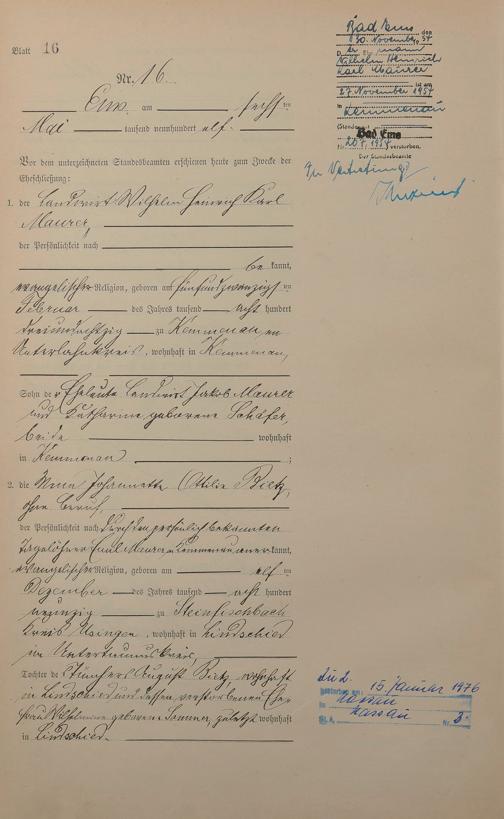 Blatt 16
Nr. 16.
Ems am sechsten
Mai tausend neunhundert elf.
Vor dem unterzeichneten Standesbeamten erschienen heute zum Zwecke der
Eheschließung:
1. der Landwirt Wilhelm Heinrich Karl
Maurer,
der Persönlichkeit nach
bekannt,
evangelischer Religion, geboren am fünfundzwanzigsten
Februar des Jahres tausend acht hundert
dreiundachtzig zu Kemmenau, im
Unterlahnkreis, wohnhaft in Kemmenau,
Sohn der Eheleute Landwirt Jakob Maurer
und Katharine, geborene Schäfer,
beide wohnhaft
in Kemmenau ;
2. die Johannette Ottilie Bietz,
ohne Beruf,
der Persönlichkeit nach durch den persönlich bekannten
Tagelöhner Emil Maurer, Kemmenau anerkannt,
evangelischer Religion, geboren am elften
Dezember des Jahres tausend acht hundert
neunzig zu Steinfischbach
Kreis Usingen, wohnhaft in Lindschied
im Untertaunuskreis,
Tochter des Tünchers August Bietz, wohnhaft
in Lindschied und dessen verstorbenen Ehe-
frau Wilhelmine geborene Sommer, zuletzt wohnhaft
in Lindschied.
Bad Ems den
30. November 57
D er Ehemann
Wilhelm Heinrich
Karl Maurer
ist am
27. November 1957
in Kemmenau
Standesamt Bad Ems
Nr. 207/1957 verstorben.
Der Standesbeamte
In Vertretung:
Zu 2.
gestorben am: 15. Januar 1976
in Nassau
St.A. Nassau Nr. 3.